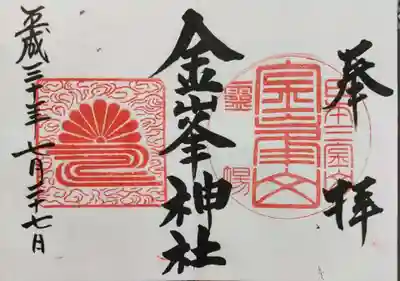 奉拝
靈場
金峯神社
平成三十年 七月二十七日